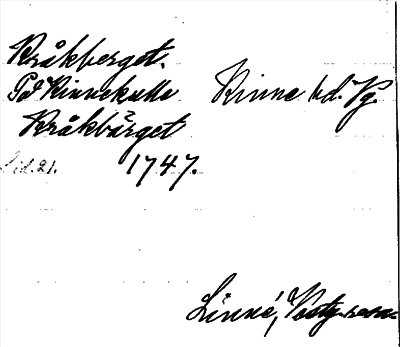 Kråkberget.
På Kinnekulle Kinne hd. Vg.
Kråkbärget
Sid. 21. 1747.
Linné, Västg. resa